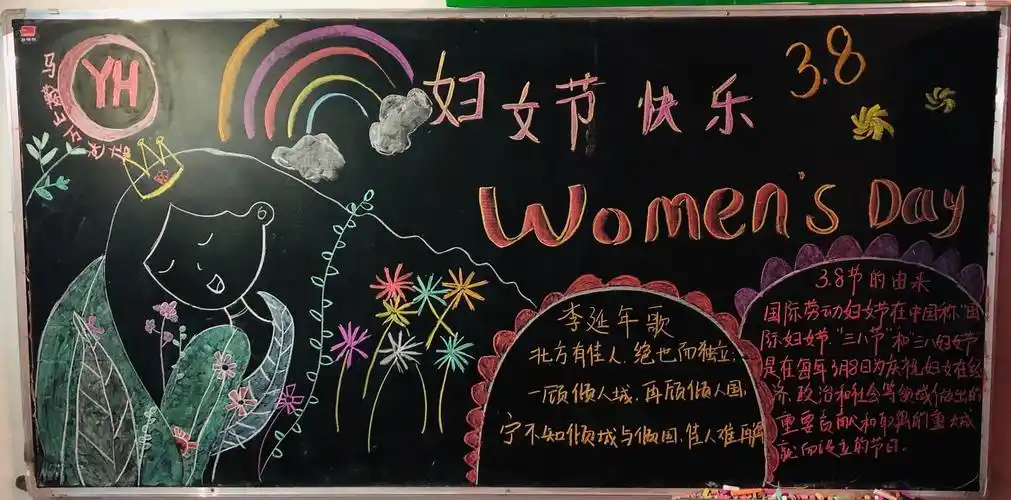 YH
妇女节快乐
3.8
Women's Day
李延年歌
北方有佳人，绝世而独立；
一顾倾人城，再顾倾人国，
宁不知倾城与倾国，佳人难再得
3.8节的由来
国际劳动妇女节在中国称"国
际妇女节"、"三八节"和三八妇女节
是在每年3月8日为庆祝妇女在经
济、政治和社会等领域做出的
重要贡献和取得的重大成
就而设立的节日。